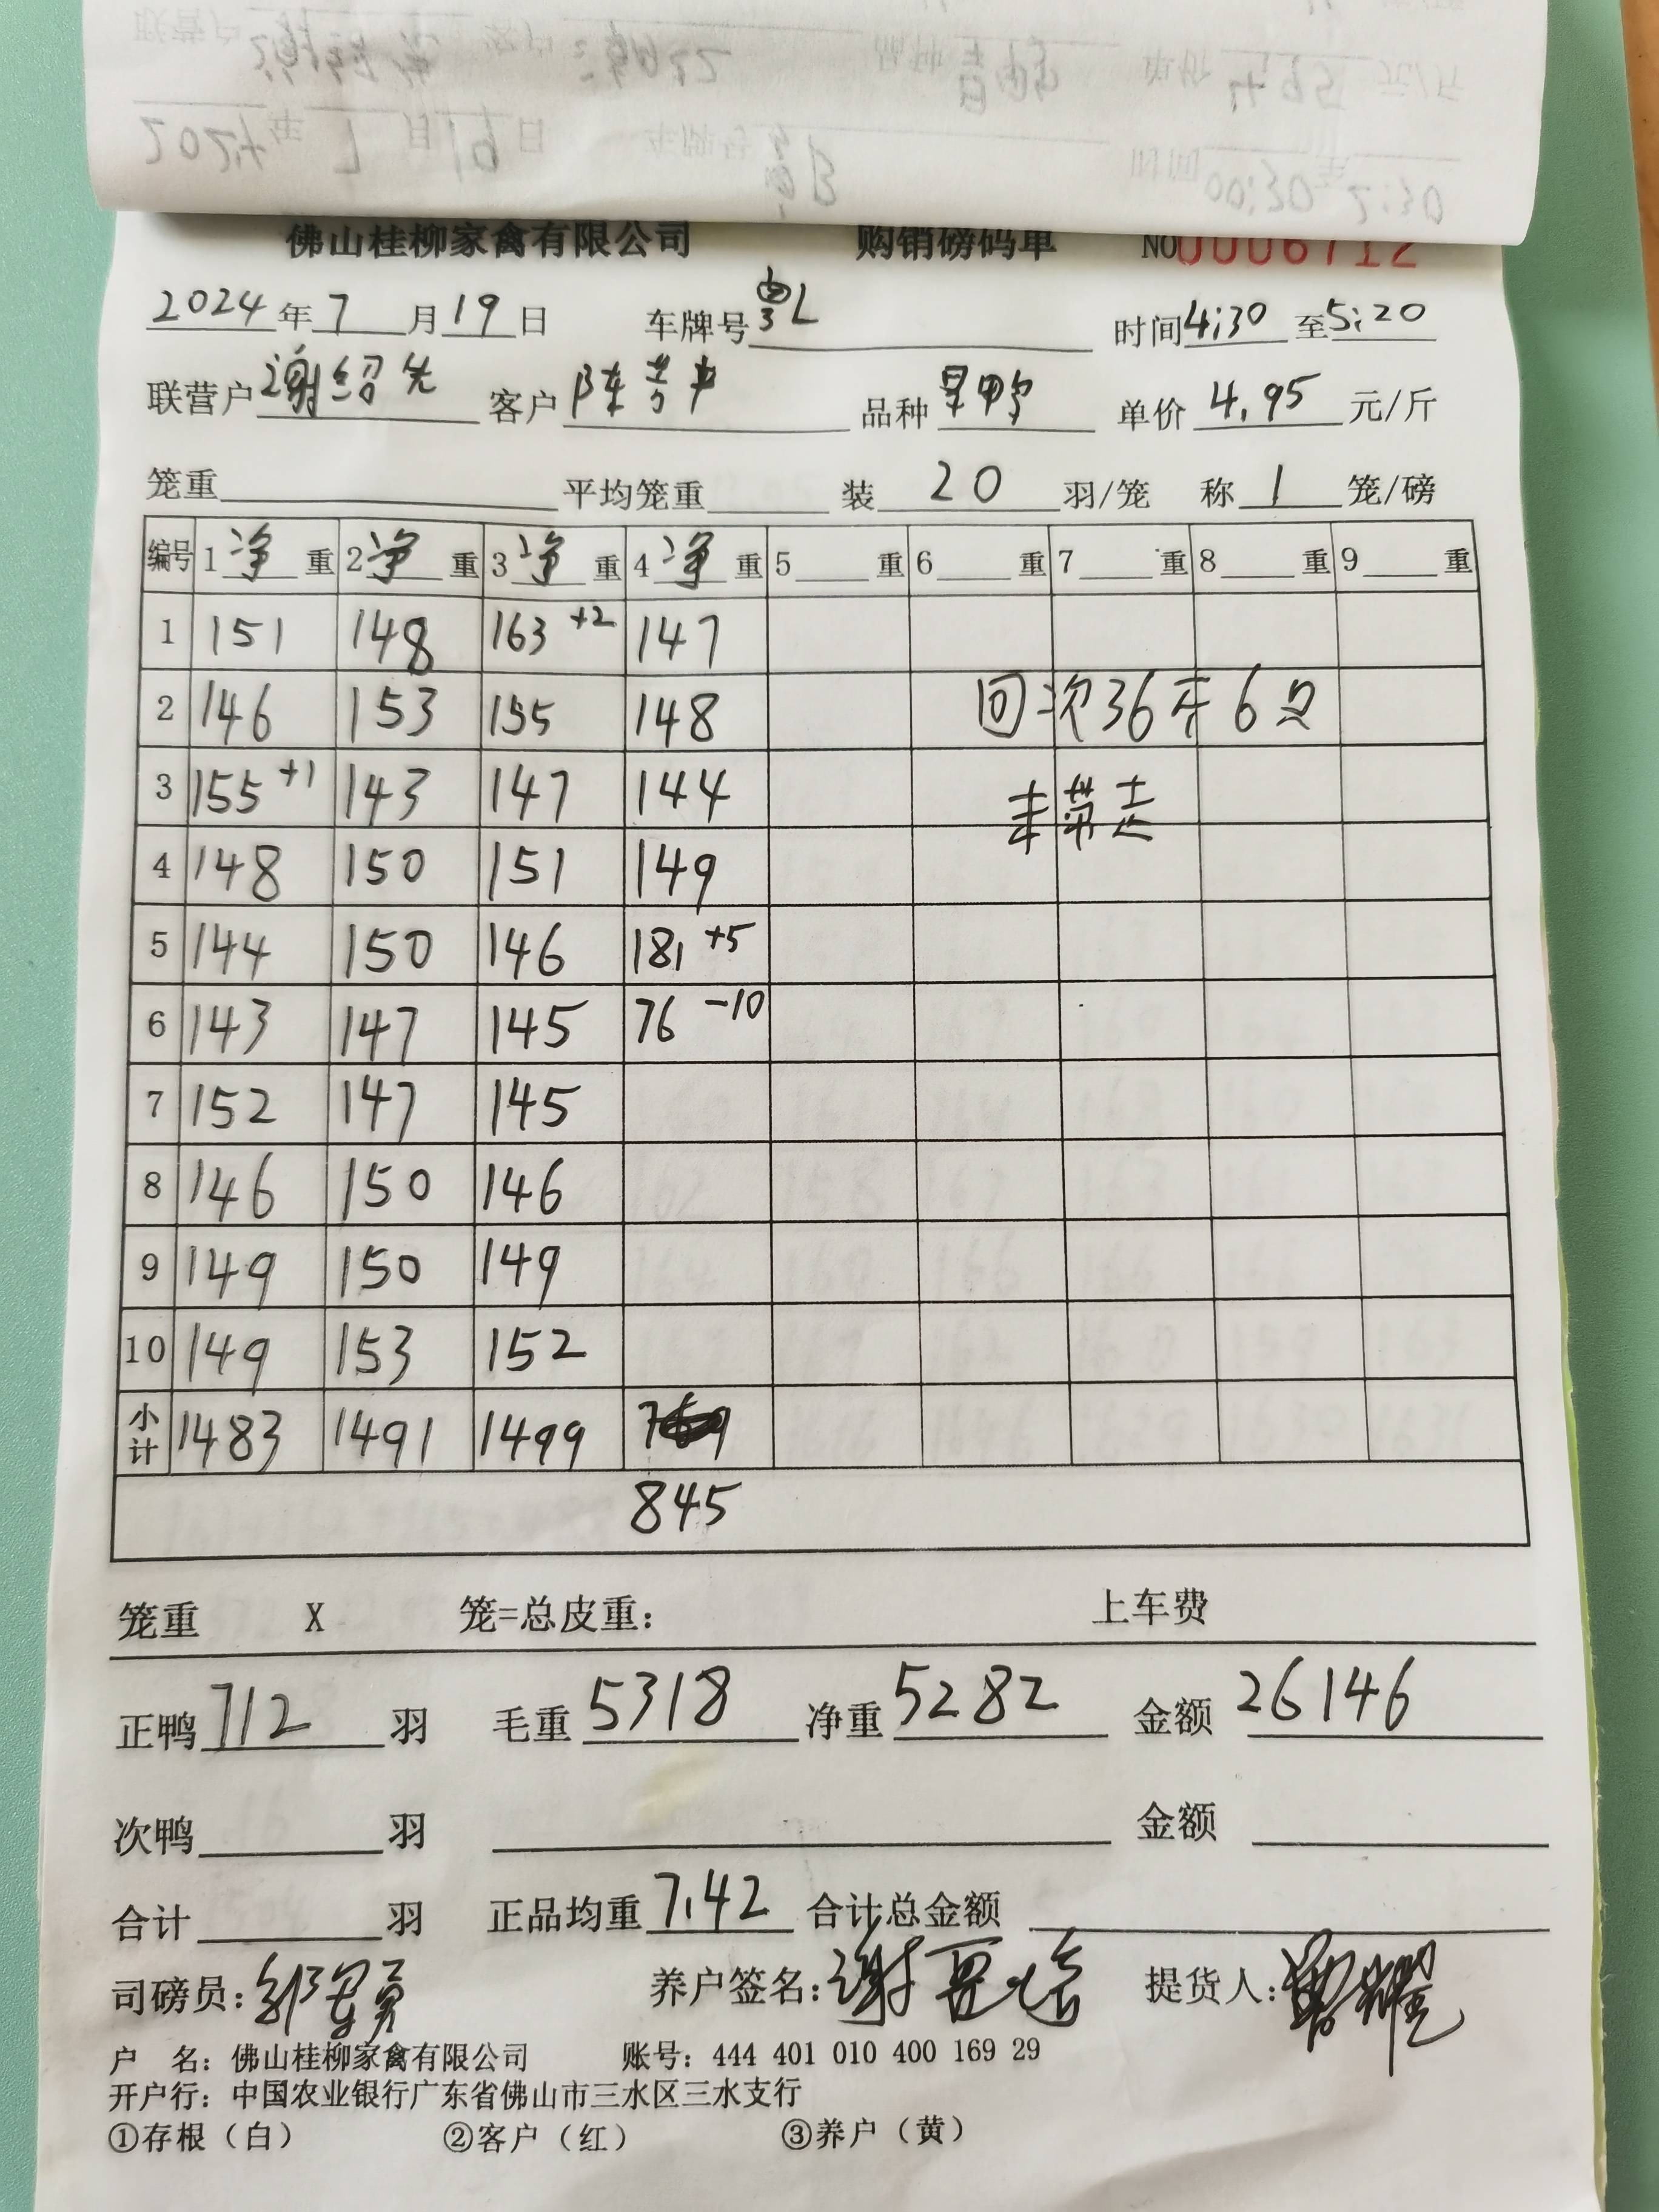 佛山桂柳家禽有限公司 购销磅码单 NO 0006712
2024年7月19日 车牌号 粤L 时间4:30至5:20
联营户 谢绍先 客户 陈 品种 单价 4.95 元/斤
笼重 平均笼重 装 20 羽/笼 称 1 笼/磅
编号 1 净 重 2 净 重 3 净 重 4 净 重 5 重 6 重 7 重 8 重 9 重
1 151 148 163 +2 147
2 146 153 155 148 回次36斤6只
3 155 +1 143 147 144
4 148 150 151 149
5 144 150 146 181 +5
6 143 147 145 76 -10
7 152 147 145
8 146 150 146
9 149 150 149
10 149 153 152
小计 1483 1491 1499
845
笼重 X 笼=总皮重: 上车费
正鸭 712 羽 毛重 5318 净重 5282 金额 26146
次鸭 羽 金额
合计 羽 正品均重 7.42 合计总金额
司磅员: 养户签名: 提货人:
户 名: 佛山桂柳家禽有限公司 账号: 444 401 010 400 169 29
开户行: 中国农业银行广东省佛山市三水区三水支行
①存根（白） ②客户（红） ③养户（黄）